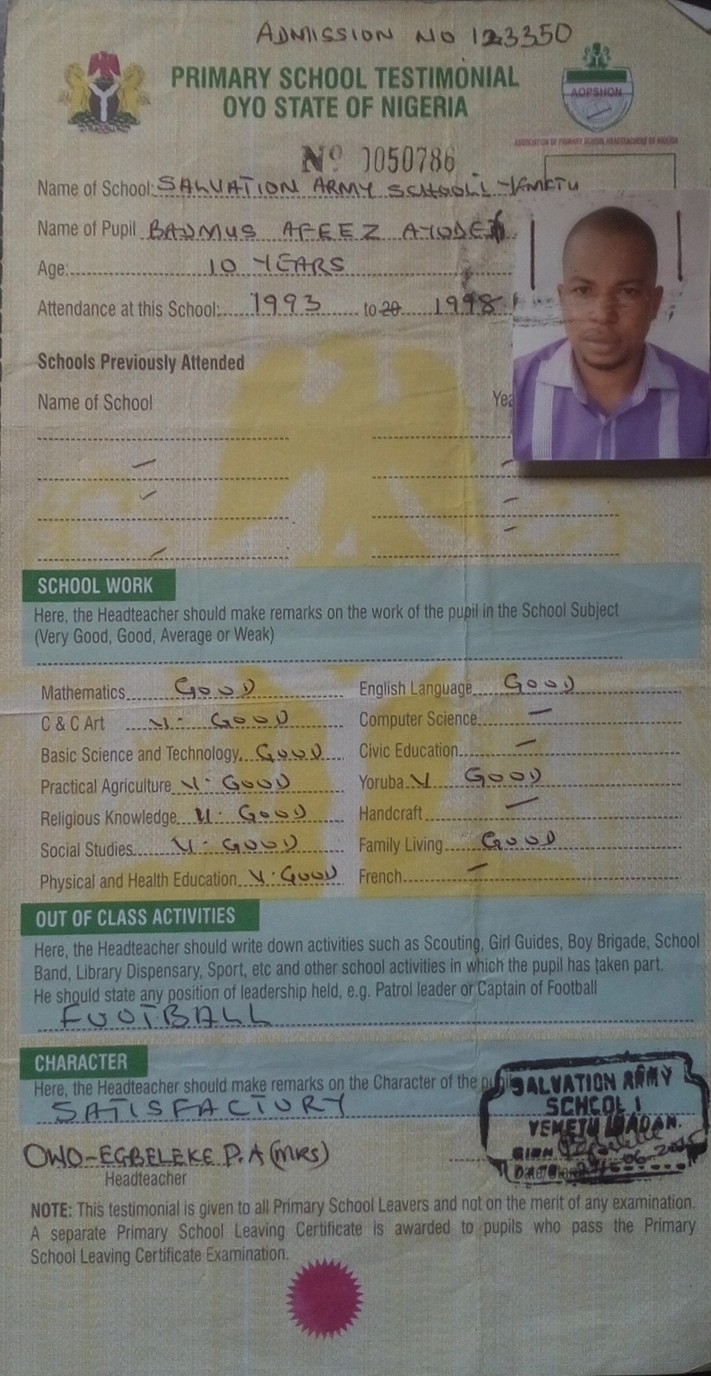 ADMISSION NO 123350
PRIMARY SCHOOL TESTIMONIAL
OYO STATE OF NIGERIA
AOPSHON
ASSOCIATION OF PRIMARY SCHOOL HEADTEACHERS OF NIGERIA
Nº 1050786
Name of School: SALVATION ARMY SCHOOL 1 YEMETU
Name of Pupil BADMUS AFEEZ AYODEJI
Age: 10 YEARS
Attendance at this School: 1993 to 20 1998
Schools Previously Attended
Name of School Yea
SCHOOL WORK
Here, the Headteacher should make remarks on the work of the pupil in the School Subject
(Very Good, Good, Average or Weak)
Mathematics GOOD English Language GOOD
C & C Art V. GOOD Computer Science —
Basic Science and Technology GOOD Civic Education —
Practical Agriculture V. GOOD Yoruba V GOOD
Religious Knowledge V. GOOD Handcraft —
Social Studies V. GOOD Family Living GOOD
Physical and Health Education V. GOOD French —
OUT OF CLASS ACTIVITIES
Here, the Headteacher should write down activities such as Scouting, Girl Guides, Boy Brigade, School
Band, Library Dispensary, Sport, etc and other school activities in which the pupil has taken part.
He should state any position of leadership held, e.g. Patrol leader or Captain of Football
FOOTBALL
CHARACTER
Here, the Headteacher should make remarks on the Character of the pupil
SATISFACTORY
SALVATION ARMY
SCHOOL 1
YEMETU IBADAN.
SIGN
DATE
OWO-EGBELEKE P.A (MRS)
Headteacher
NOTE: This testimonial is given to all Primary School Leavers and not on the merit of any examination.
A separate Primary School Leaving Certificate is awarded to pupils who pass the Primary
School Leaving Certificate Examination.